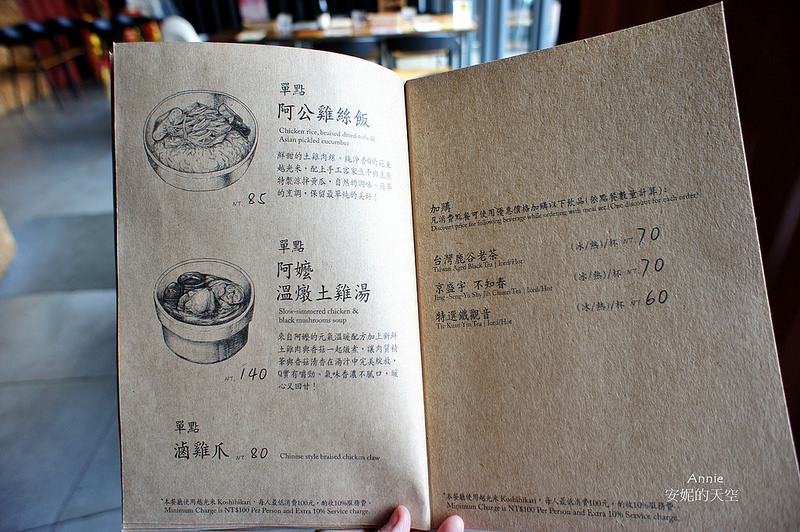 單點
阿公雞絲飯
Chicken rice, braised dried tofu &
Asian pickled cucumber
鮮甜的土雞肉絲，純淨香Q的花東
越光米，配上手工客家豆干與主廚
特製涼拌黃瓜，自然的調味、簡單
的烹調，保留最單純的美好！
NT. 85
單點
阿嬤
溫燉土雞湯
Slow-simmered chicken &
black mushrooms soup
來自阿嬤的元氣溫暖配方加上新鮮
土雞肉與香菇一起燉煮，讓肉質精
華與香菇清香在湯汁中完美綻放，
Q實有嚼勁、氣味香濃不膩口，暖
心又回甘！
NT. 140
單點
滷雞爪 NT. 80 Chinese style braised chicken claw
*本餐廳使用越光米 Koshihikari，每人最低消費100元，酌收10%服務費。
Minimum Charge is NT$100 Per Person and Extra 10% Service charge.
加購
凡消費點餐可使用優惠價格加購以下飲品(依點餐數量計算)：
Discount price for following beverage while ordering with meal set ( One discount for each order)
台灣鹿谷老茶 (冰/熱)/杯 NT 70
Taiwan Aged Black Tea | Iced/Hot
京盛宇 不知春 (冰/熱)/杯 NT 70
Jing-Seng-Yu Shy Jih Chuan Tea | Iced/Hot
特選鐵觀音 (冰/熱)/杯 NT 60
Tie Kuan Yin Tea | Iced/Hot
*本餐廳使用越光米 Koshihikari，每人最低消費100元，酌收10%服務費。
Minimum Charge is NT$100 Per Person and Extra 10% Service charge.
Annie
安妮的天空